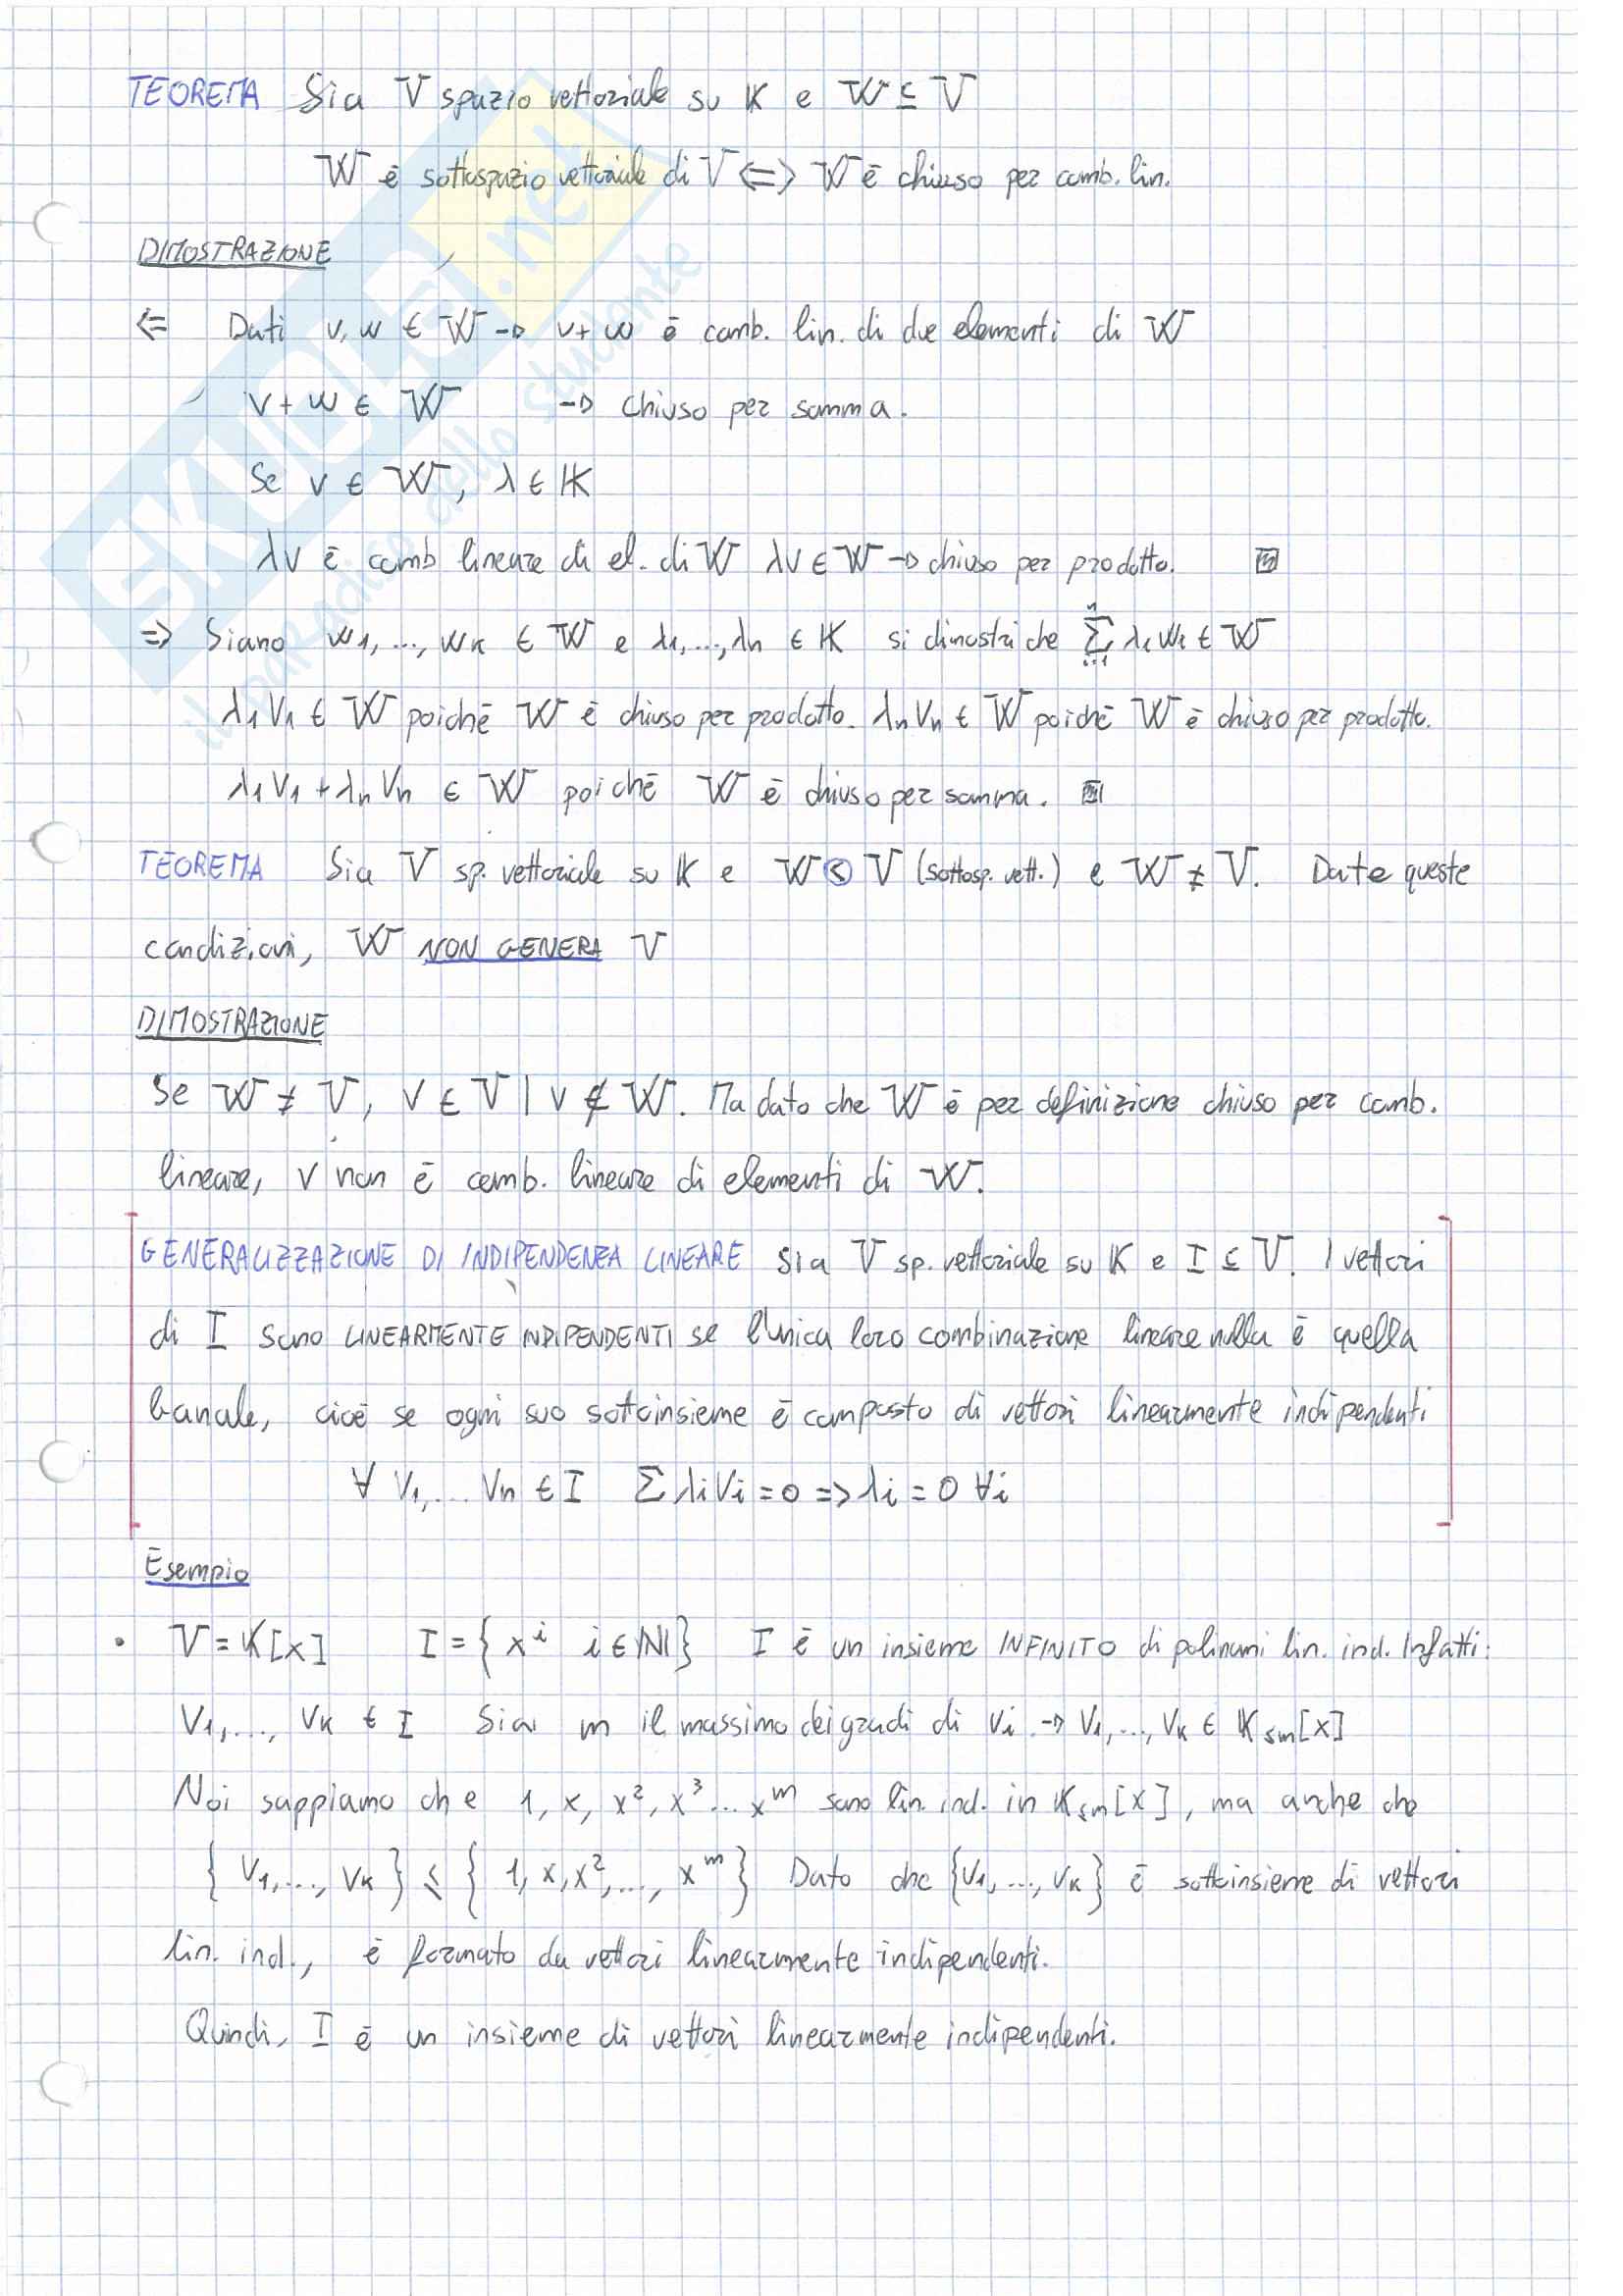 TEOREMA Sia V spazio vettoriale su K e W ⊆ V
W è sottospazio vettoriale di V <=> W è chiuso per comb. lin.
DIMOSTRAZIONE
<= Dati v, w ∈ W → v + w è comb. lin. di due elementi di W
v + w ∈ W → chiuso per somma.
Se v ∈ W, λ ∈ K
λv è comb lineare di el. di W λv ∈ W → chiuso per prodotto.
=> Siano w1, ..., wk ∈ W e λ1, ..., λn ∈ K si dimostri che Σ_{i=1}^{n} λi wi ∈ W
λ1V1 ∈ W poiché W è chiuso per prodotto. λnVn ∈ W poiché W è chiuso per prodotto.
λ1V1 + λnVn ∈ W poiché W è chiuso per somma.
TEOREMA Sia V sp. vettoriale su K e W ≤ V (sottosp. vett.) e W ≠ V. Date queste
condizioni, W NON GENERA V
DIMOSTRAZIONE
Se W ≠ V, v ∈ V | v ∉ W. Ma dato che W è per definizione chiuso per comb.
lineare, v non è comb. lineare di elementi di W.
GENERALIZZAZIONE DI INDIPENDENZA LINEARE Sia V sp. vettoriale su K e I ⊆ V. I vettori
di I sono LINEARMENTE INDIPENDENTI se l'unica loro combinazione lineare nulla è quella
banale, cioè se ogni suo sottoinsieme è composto di vettori linearmente indipendenti
∀ V1, ... Vn ∈ I Σ λiVi = 0 => λi = 0 ∀i
Esempio
• V = K[x] I = { x^i i ∈ N } I è un insieme INFINITO di polinomi lin. ind. Infatti:
V1, ..., Vk ∈ I Sia m il massimo dei gradi di Vi → V1, ..., Vk ∈ K≤m[x]
Noi sappiamo che 1, x, x², x³ ... x^m sono lin. ind. in K≤m[x], ma anche che
{ V1, ..., Vk } ≤ { 1, x, x², ..., x^m } Dato che {V1, ..., Vk} è sottoinsieme di vettori
lin. ind., è formato da vettori linearmente indipendenti.
Quindi, I è un insieme di vettori linearmente indipendenti.
SKUOLA.net
il paradiso dello studente